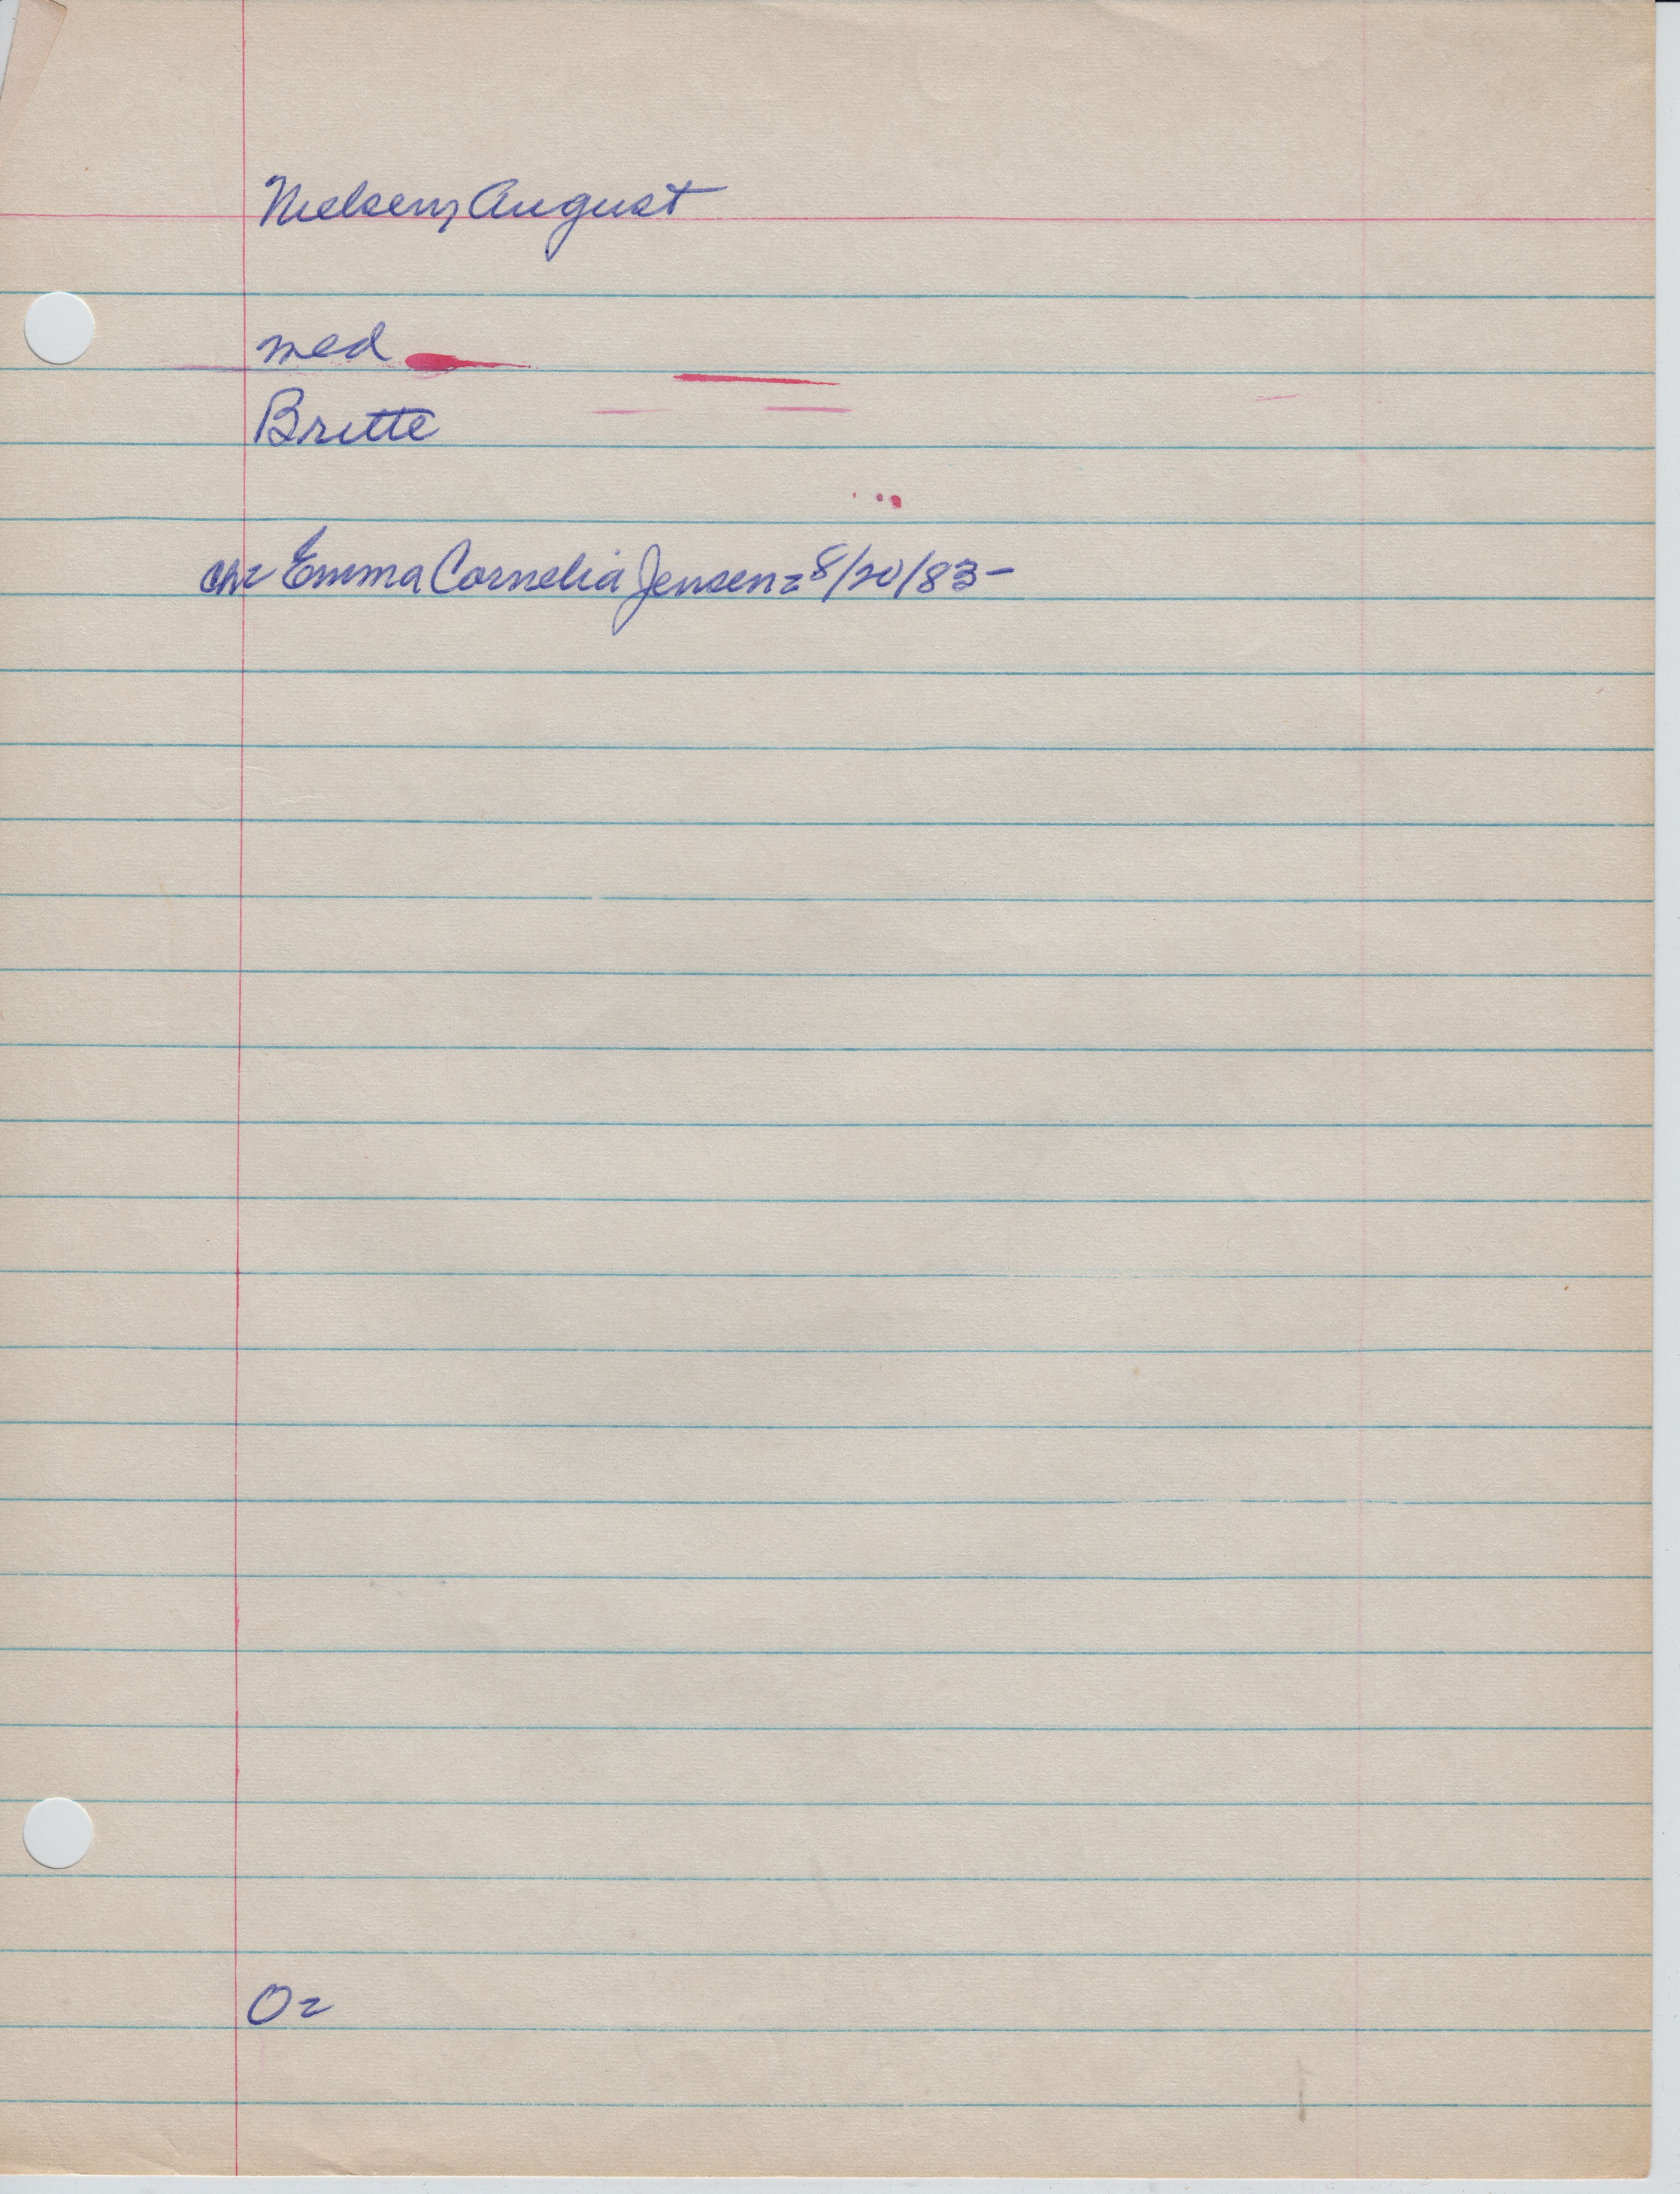 Nielsen, August
med
Britte
ch= Emma Cornelia Jensen= 8/20/83-
O=